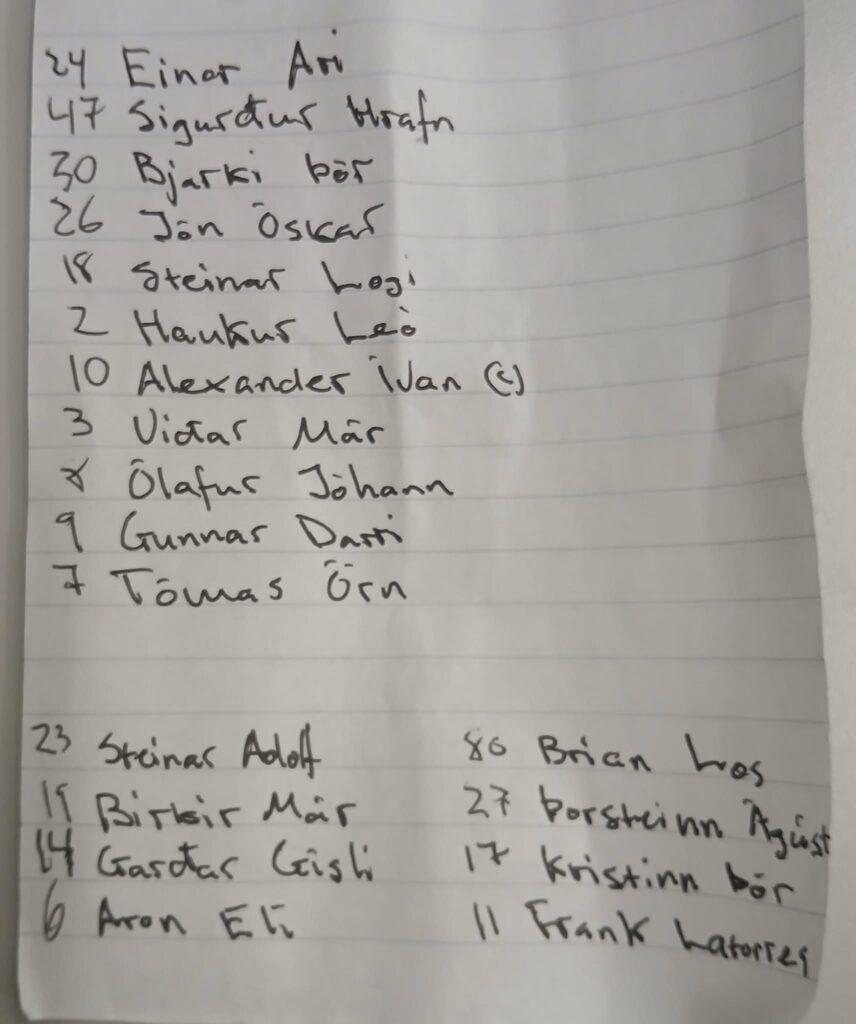 24 Einar Ari
47 Sigurður Hrafn
30 Bjarki Þór
26 Jón Óskar
18 Steinar Logi
2 Haukur Leó
10 Alexander Ívan (c)
3 Viðar Már
8 Ólafur Jóhann
9 Gunnar Darri
7 Tómas Örn
23 Steinar Adolf
19 Birkir Már
14 Garðar Gísli
6 Aron Elí
80 Brian Los
27 Þorsteinn Ágúst
17 Kristinn Þór
11 Frank Latorrey